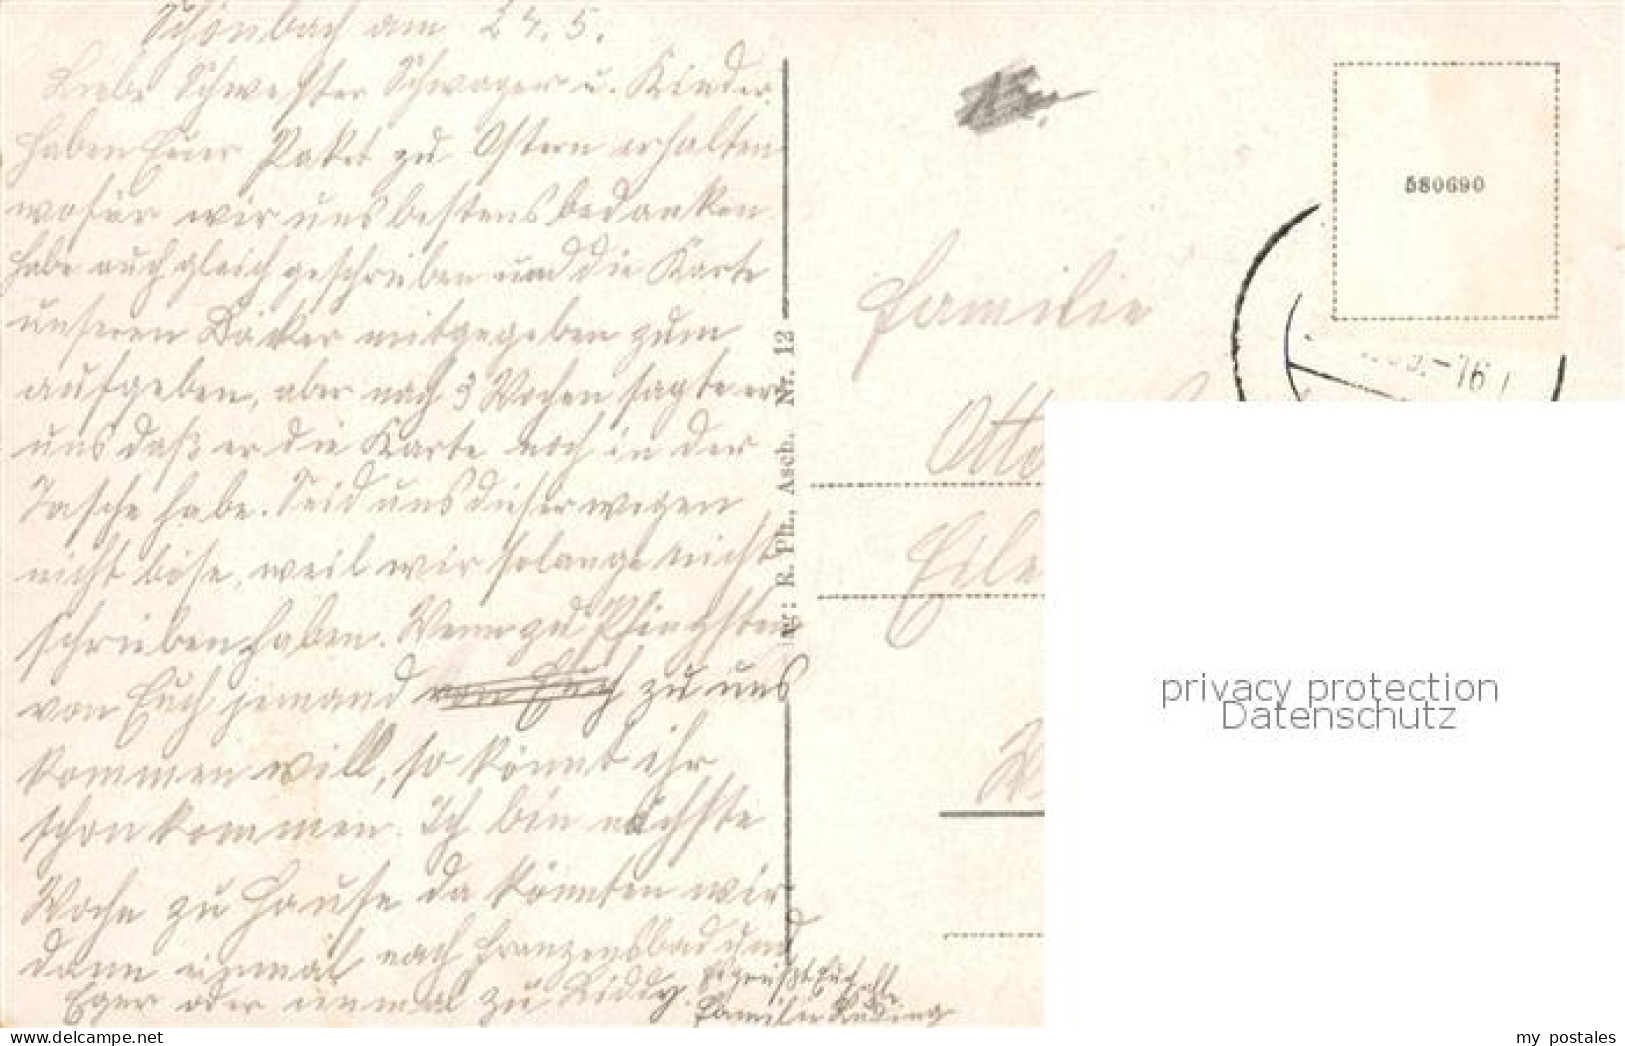 Schönbach am 24.5.
Liebe Schwester Schwager u. Kinder.
Haben Euer Paket zu Ostern erhalten
wofür wir uns bestens bedanken
habe auch gleich geschrieben und die Karte
unseren Bäcker mitgegeben zum
aufgeben, aber nach 3 Wochen sagte er
uns daß er die Karte noch in der
Tasche habe. Seid uns dieserwegen
nicht böse, weil wir solange nicht
schrieben haben. Wenn zu Pfingsten
von Euch jemand von Euch zu uns
kommen will, so könnt ihr
schon kommen. Ich bin nächste
Woche zu Hause da könnten wir
dann einmal nach Franzensbad und
Eger oder einmal zu
Es grüßt Euch alle
Familie
R. Ph., Asch. Nr. 12
580690
Familie
Otto
Eile
privacy protection
Datenschutz
my postales